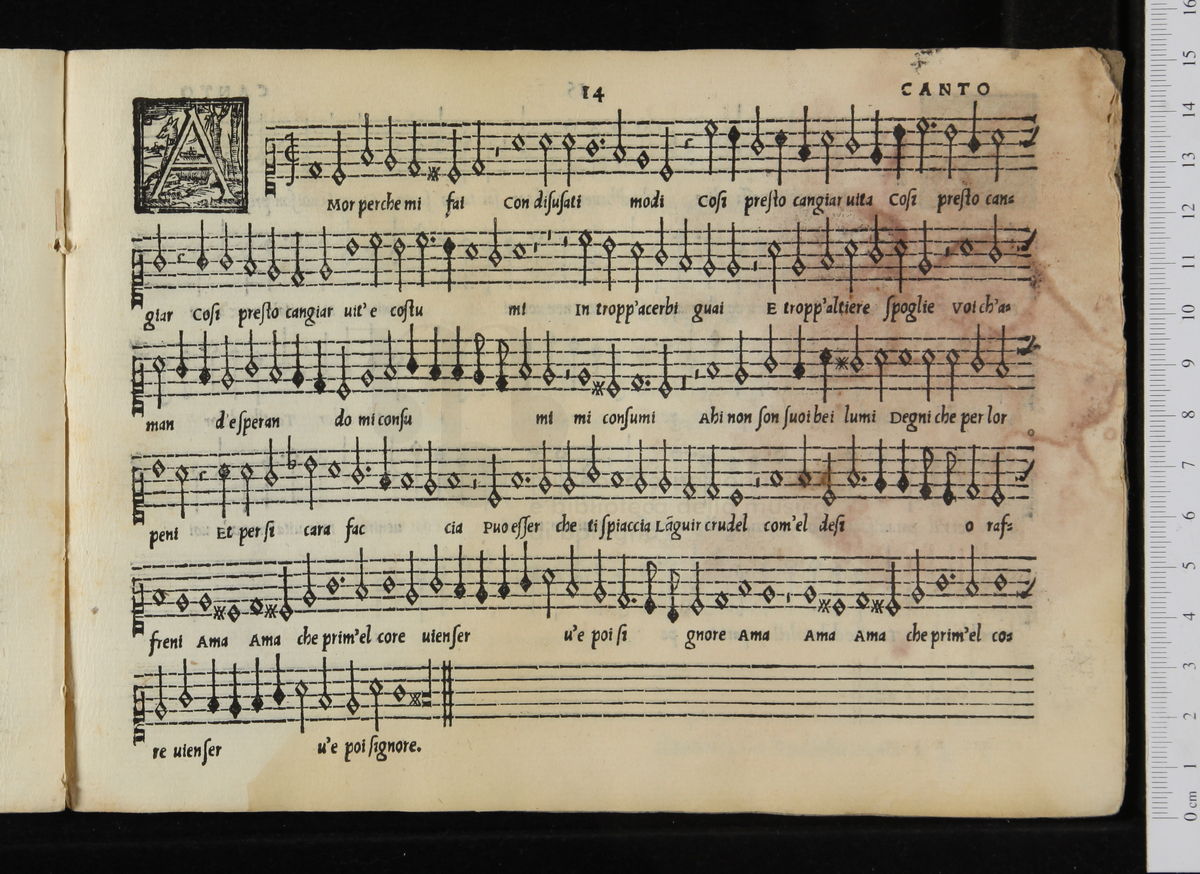 14 CANTO
A Mor perche mi fai Con disusati modi Cosi presto cangiar uita Cosi presto can=
giar Cosi presto cangiar uit'e costu mi In tropp'acerbi guai E tropp'altiere spoglie Voi ch'a=
man d'esperan do mi consu mi mi consumi Ahi non son suoi bei lumi Degni che per lor
peni Et per si cara fac cia Puo esser che ti spiaccia Lãguir crudel com'el desi o raf=
freni Ama Ama che prim'el core uienser u'e poi si gnore Ama Ama Ama che prim'el co=
re uienser u'e poi signore.
16
15
14
13
12
11
10
9
8
7
6
5
4
3
2
1
0 cm